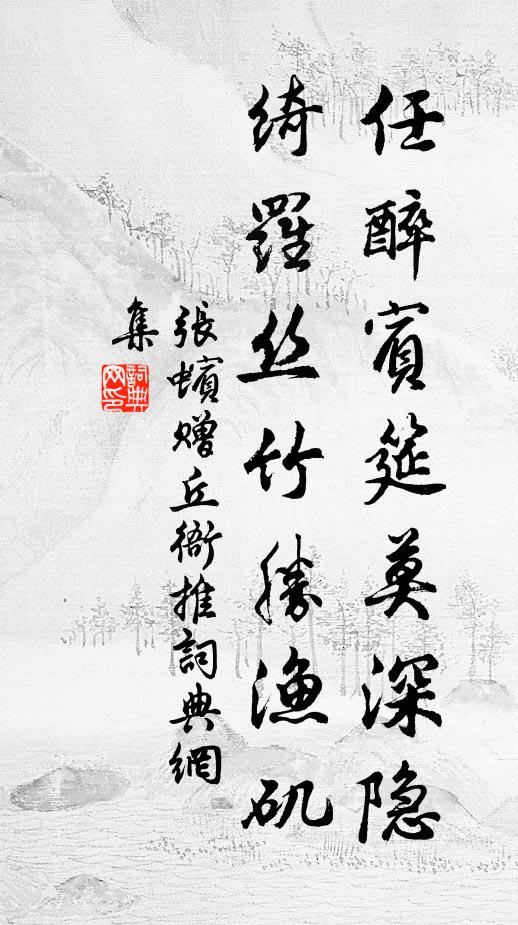 任醉賓筵莫深隐
绮羅丝竹勝漁矶
張蠙赠丘衙推詞典網
集
詞典網印